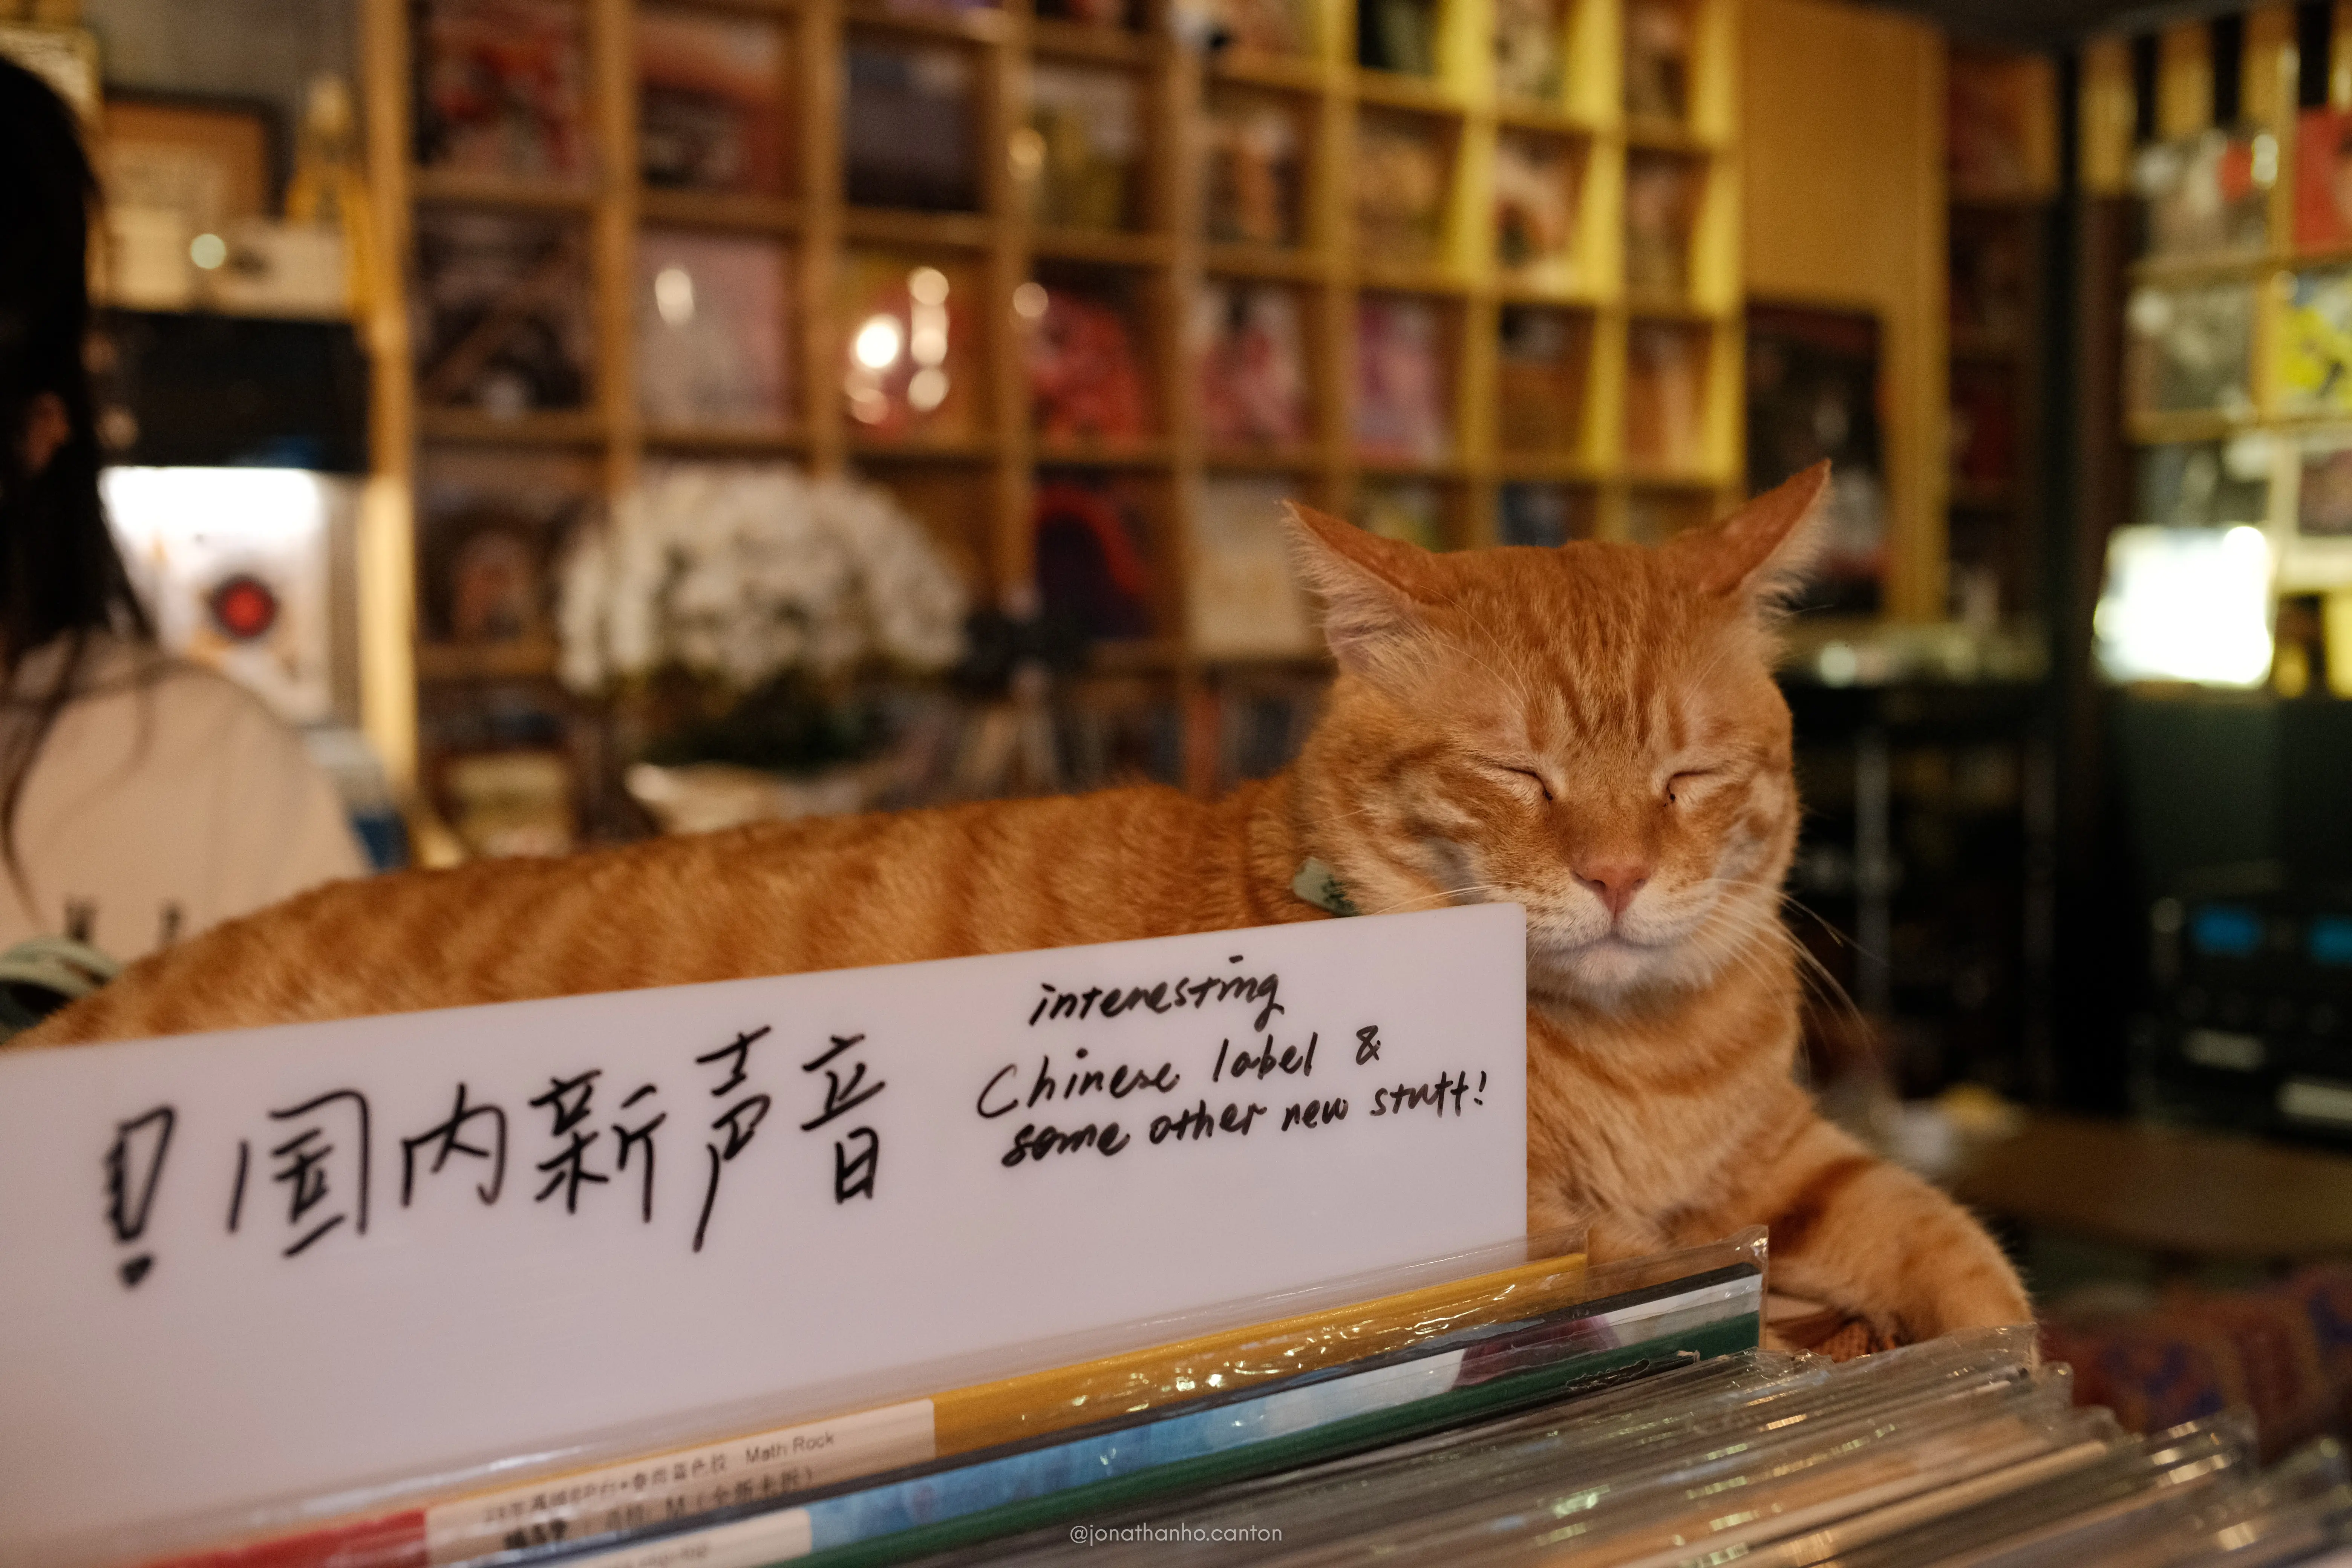 ！国内新声音
interesting
Chinese label &
some other new stuff!
Math Rock
@jonathanho.canton